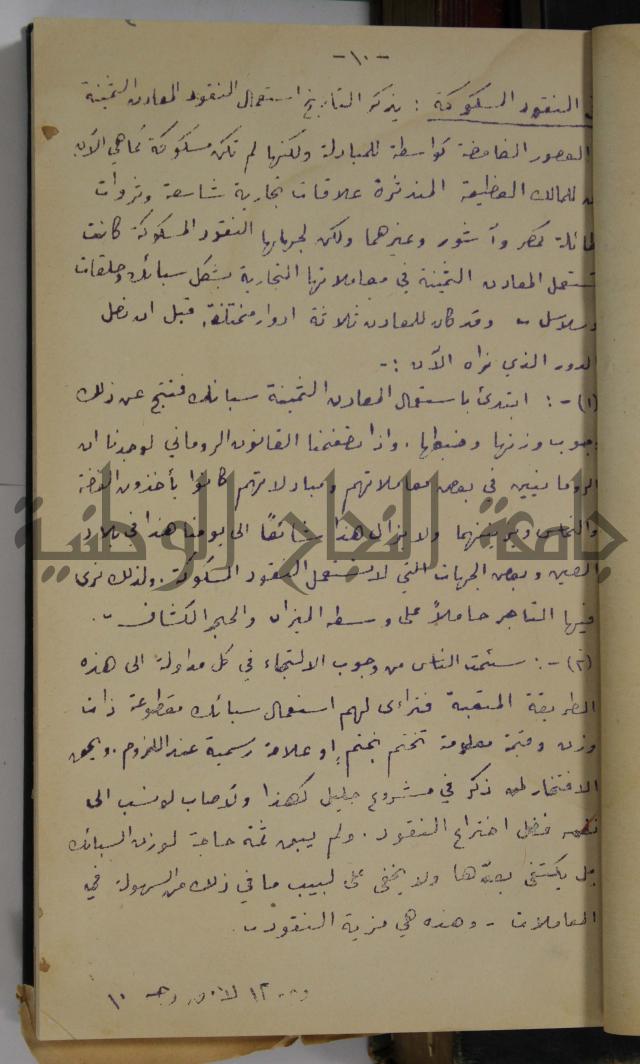 -١٠-
النقود المسكوكة : يذكر التاريخ استعمال النقود المعادن الثمينة
العصور الغامضة كواسطة للمبادلة ولكنها لم تكن مسكوكة كما هي الآن
للمالك العظيمة المندثرة علاقات تجارية شاسعة وثروات
طائلة كمصر وآشور وغيرهما ولكن لجهلها النقود المسكوكة كانت
تستعمل المعادن الثمينة في معاملاتها التجارية بشكل سبائك وحلقات
وسلاسل - وقد كان للمعادن ثلاثة ادوار مختلفة قبل ان نصل
الدور الذي نراه الآن :-
(١) -: ابتدئ باستعمال المعادن الثمينة سبائك فنتج عن ذلك
وجوب وزنها وضبطها . واذا تصفحنا القانون الروماني لوجدنا ان
الرومانيين في بعض معاملاتهم ومبادلاتهم كانوا يأخذون الفضة
والنحاس ويزنونهما ولا يزال هذا شائعاً الى يومنا هذا في بلاد
الصين وبعض الجهات التي لا تستعمل النقود المسكوكة . ولذلك نرى
فيها التاجر حاملاً على وسطه الميزان والحجر الكشاف -.
(٢) -: سئمت الناس من وجوب الالتجاء في كل مداولة الى هذه
الطريقة المتعبة فتراءى لهم استعمال سبائك مقطوعة ذات
وزن وقيمة معلومة تختم بختم او علامة رسمية عند اللزوم . ويحق
الافتخار لمن ذكر في مشروع جليل كهذا ولأصاب لو نسب الى
نفسه فضل اختراع النقود . ولم يبق ثمة حاجة لوزن السبائك
بل يكتفى بعدّها ولا يخفى على لبيب ما في ذلك من السهولة في
المعاملات - وهذه هي مزية النقود -.
١٠
جامعة النجاح الوطنية